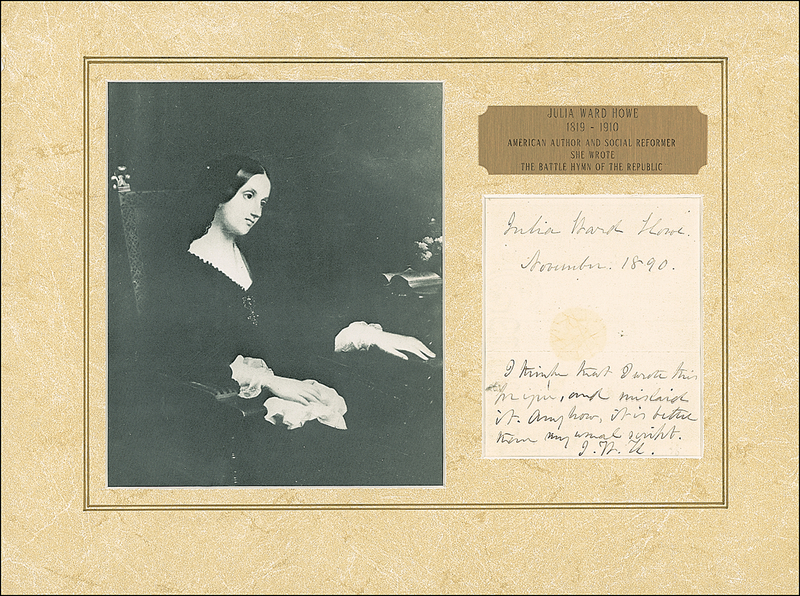 JULIA WARD HOWE
1819 - 1910
AMERICAN AUTHOR AND SOCIAL REFORMER
SHE WROTE
THE BATTLE HYMN OF THE REPUBLIC
Julia Ward Howe.
November. 1890.
I think that I wrote this
for you, and mislaid
it. Anyhow, it is better
than my usual script.
J. W. H.